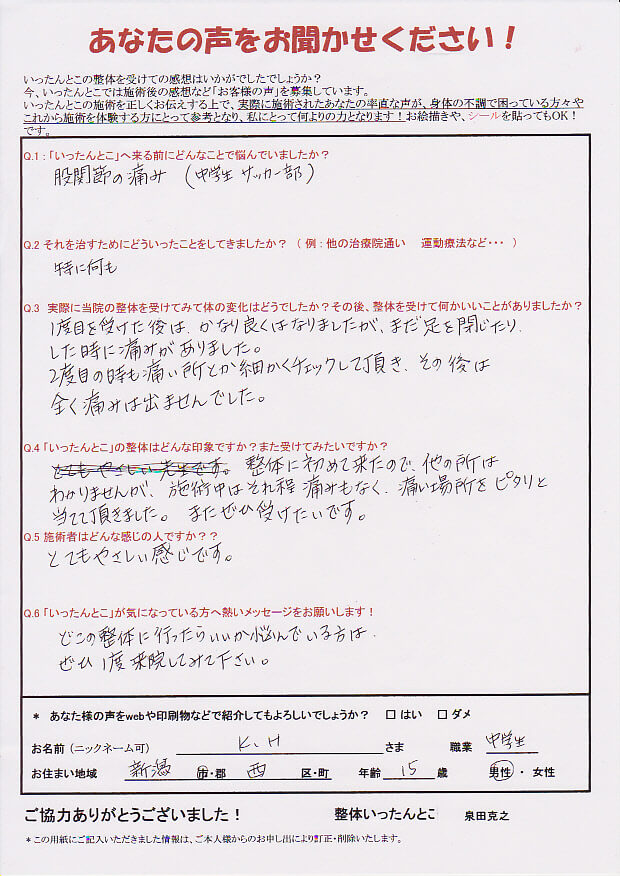 あなたの声をお聞かせください！
いったんとこの整体を受けての感想はいかがでしたでしょうか？
今、いったんとこでは施術後の感想など「お客様の声」を募集しています。
いったんとこの施術を正しくお伝えする上で、実際に施術されたあなたの率直な声が、身体の不調で困っている方々や
これから施術を体験する方にとって参考となり、私にとって何よりの力となります！お絵描きや、シールを貼ってもOK！
です。
Q.1：「いったんとこ」へ来る前にどんなことで悩んでいましたか？
股関節の痛み （中学生 サッカー部）
Q.2 それを治すためにどういったことをしてきましたか？ （ 例：他の治療院通い 運動療法など・・・ ）
特に何も
Q.3 実際に当院の整体を受けてみて体の変化はどうでしたか？その後、整体を受けて何かいいことがありましたか？
1度目を受けた後は、かなり良くはなりましたが、まだ足を閉じたり、
した時に痛みがありました。
2度目の時も痛い所とか細かくチェックして頂き、その後は
全く痛みは出ませんでした。
Q.4 「いったんとこ」の整体はどんな印象ですか？また受けてみたいですか？
とてもやさしい先生です。整体に初めて来たので、他の所は
わかりませんが、施術中はそれ程痛みもなく、痛い場所をピタリと
当てて頂きました。 またぜひ受けたいです。
Q.5 施術者はどんな感じの人ですか？？
とてもやさしい感じです。
Q.6 「いったんとこ」が気になっている方へ熱いメッセージをお願いします！
どこの整体に行ったらいいか悩んでいる方は、
ぜひ1度来院してみて下さい。
* あなた様の声をwebや印刷物などで紹介してもよろしいでしょうか？ □ はい □ ダメ
お名前（ニックネーム可） K.H さま 職業 中学生
お住まい地域 新潟 市・郡 西 区・町 年齢 15 歳 男性・女性
ご協力ありがとうございました！ 整体いったんとこ 泉田克之
* この用紙にご記入いただきました情報は、ご本人様からのお申し出により訂正・削除いたします。